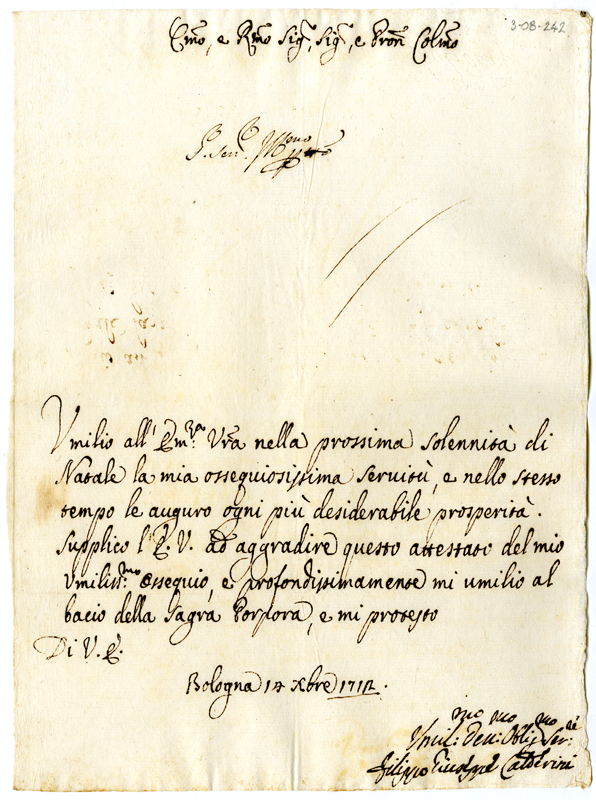 3-08-242
Emo, e Rmo Sig., Sig., e Pron Colmo
Umilio all' Em.za Vra nella prossima solennità di
Natale la mia ossequiosissima servitù, e nello stesso
tempo le auguro ogni più desiderabile prosperità.
Supplico l'E. V. ad aggradire questo attestato del mio
umiliss.mo ossequio, e profondissimamente mi umilio al
bacio della Sagra Porpora, e mi protesto
Di V. E.
Bologna Xbre
Umil: Deu: Obl Ser:
Filippo Giuseppe Calderini